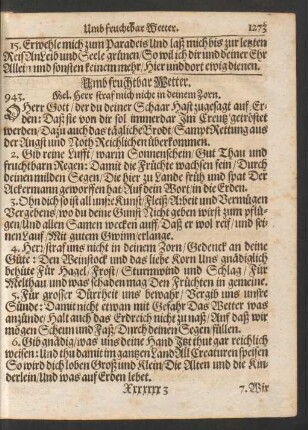 Umb fruchtbar Wetter. 1273
15. Erwehle mich zum Paradeis Und laß mich bis zur letzten
Reis An Leib und Seele grünen/ So wil ich dir und deiner Ehr
Allein und sonsten keinem mehr/ Hier und dort ewig dienen.
Umb fruchtbar Wetter.
943. Mel. Herr straf mich nicht in deinem Zorn.
O Herr Gott/ der du deiner Schaar Hast zugesagt auf Er-
den: Daß sie von dir sol immerdar Im Creutz getröstet
werden/ Dazu auch das tägliche Brodt/ Sampt Rettung aus
der Angst und Noth Reichlichen überkommen.
2. Gib reine Lufft/ warm Sonnenschein/ Gut Thau und
fruchtbarn Regen: Damit die Früchte wachsen fein/ Durch
deinen milden Segen/ Die hier zu Lande früh und spat Der
Ackermann geworffen hat Auf dein Wort/ in die Erden.
3. Ohn dich so ist all unsre Kunst/ Fleiß/ Arbeit und Vermügen
Vergebens/ wo du deine Gunst Nicht geben wirst zum pflü-
gen/ Und allen Samen wecken auf/ Daß er wol reif/ und sei-
nen Lauf/ Mit gutem Gwinn erlange.
4. Herr/ straf uns nicht in deinem Zorn/ Gedenck an deine
Güte: Den Weinstock und das liebe Korn Uns gnädiglich
behüte Für Hagel/ Frost/ Sturmwind und Schlag/ Für
Melthau und was schaden mag Den Früchten in gemeine.
5. Für grosser Dürrheit uns bewahr/ Vergib uns unsre
Sünde: Damit nicht etwan mit Gefahr Das Wetter was
anzünde/ Halt auch das Erdreich nicht zu naß/ Auf daß wir
mögen Scheun und Faß/ Durch deinen Segen füllen.
6. Gib gnädig/ was uns deine Hand Itzt thut gar reichlich
weisen: Und thu damit im gantzen Land All Creaturen speisen
So wird dich loben Groß und Klein/ Die Alten und die Kin-
derlein/ Und was auf Erden lebet.
Xxxxxxx 3 7. Wir